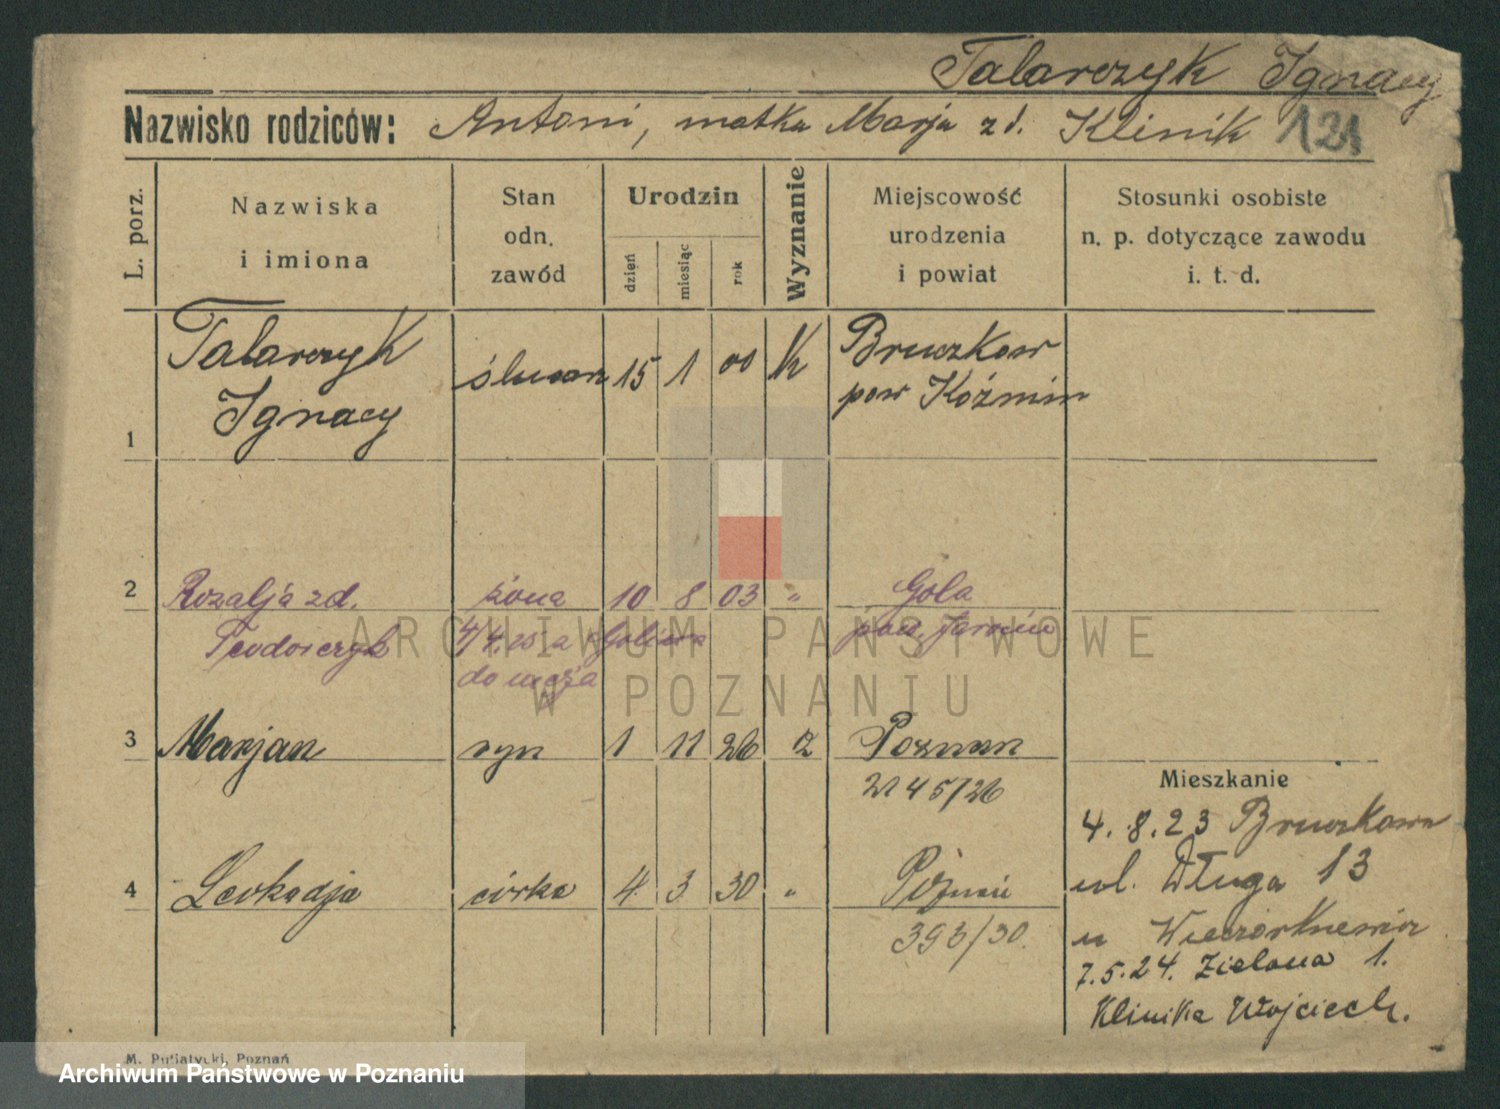 Talarczyk Ignacy
Nazwisko rodziców: Antoni, matka Marja zd. Klinik 121
L. porz.
Nazwiska
i imiona
Stan
odn.
zawód
Urodzin
dzień
miesiąc
rok
Wyznanie
Miejscowość
urodzenia
i powiat
Stosunki osobiste
n. p. dotyczące zawodu
i. t. d.
1
Talarczyk
Ignacy
ślusarz 15 1 00 K
Bruczkow
pow Koźmin
2 Rozalja zd. żona 10 8 03 " Gola
Teodorczyk
4/4.25 a
pow. Jarocin
do męża
3 Marjan syn 1 11 26 Poznan
2145/26
4 Leokadja córka 4 3 30 " Poznań
393/30.
Mieszkanie
4.8.23 Bruczkowa
ul. Długa 13
u
7.5.24. Zielona 1.
Klinika Wojciech.
ARCHIWUM PAŃSTWOWE
W POZNANIU
M. Putiatycki, Poznań
Archiwum Państwowe w Poznaniu